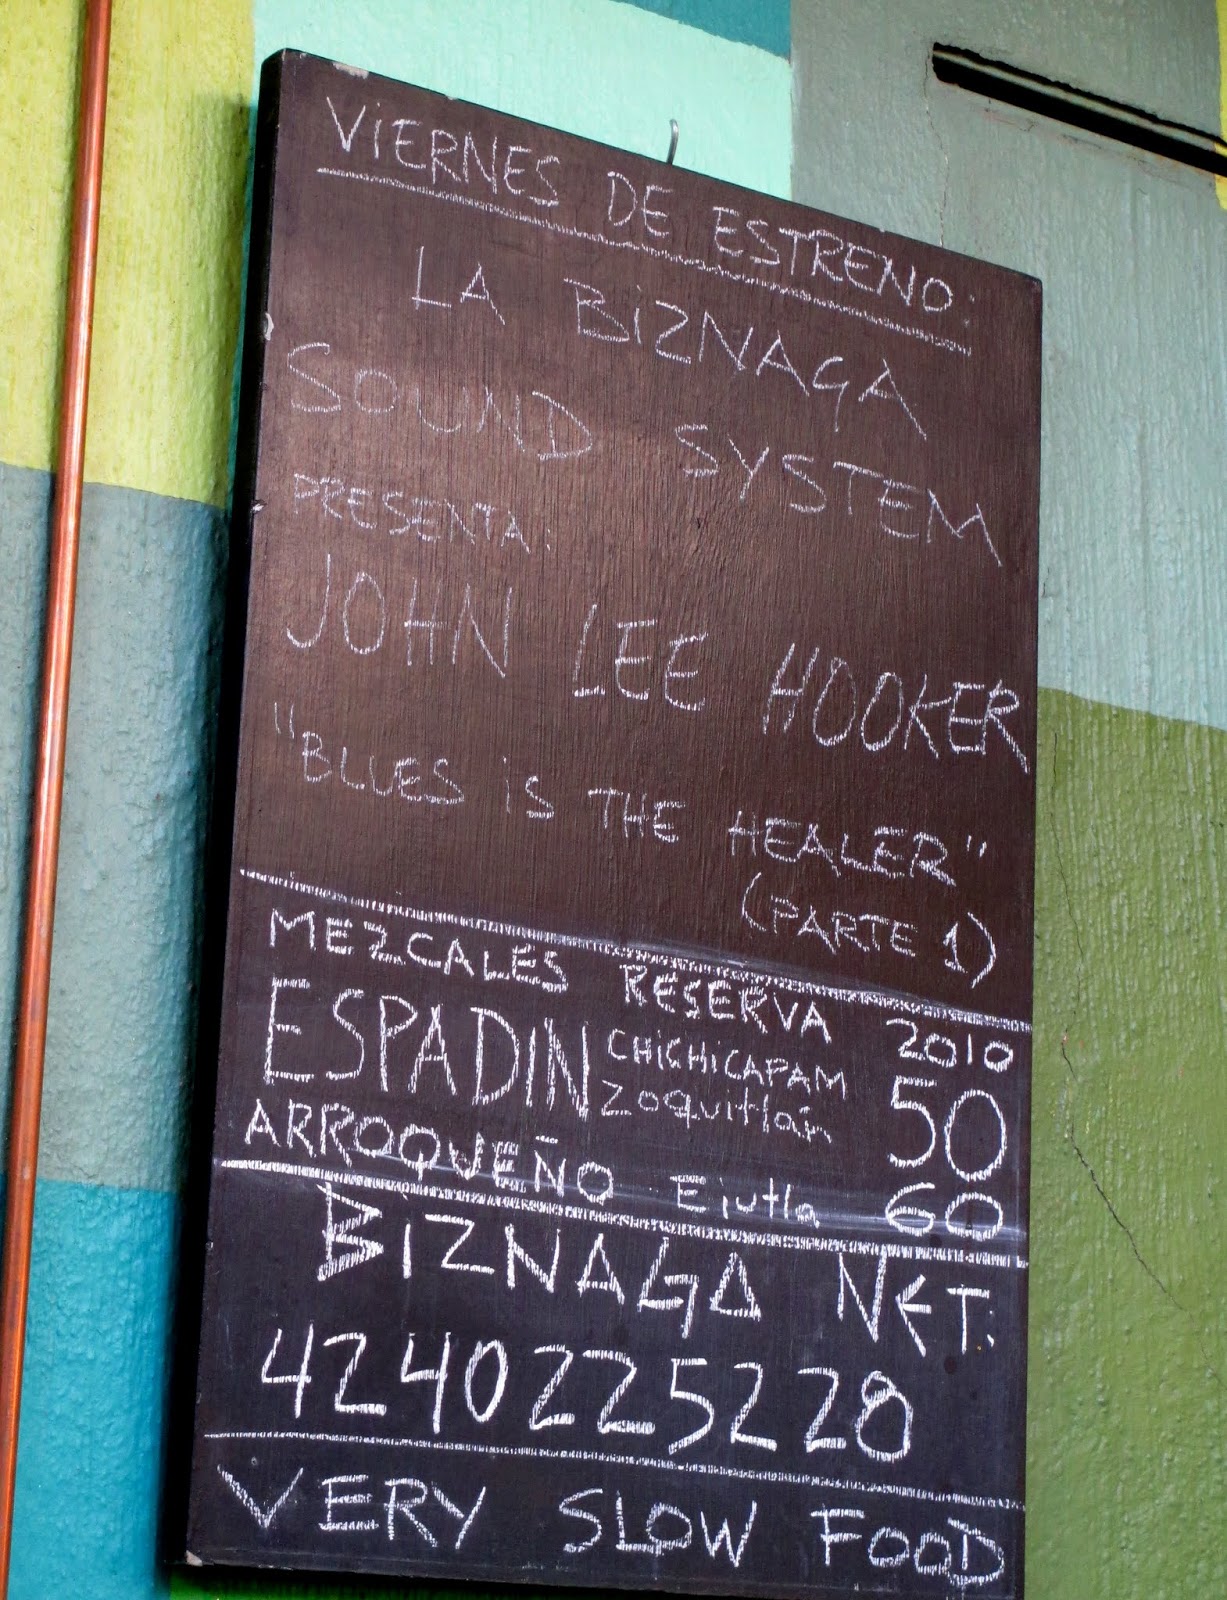 ViERNES DE ESTRENO:
LA BiZNAGA
SOUND SYSTEM
PRESENTA:
JOHN LEE HOOKER
"BLUES iS THE HEALER"
(PARTE 1)
MEZCALES RESERVA 2010
ESPADIN CHiCHiCAPAM 50
Zoquitlán
ARROQUEÑO Ejutla 60
BiZNAGA NET:
424022522 8
VERY SLOW FOOD